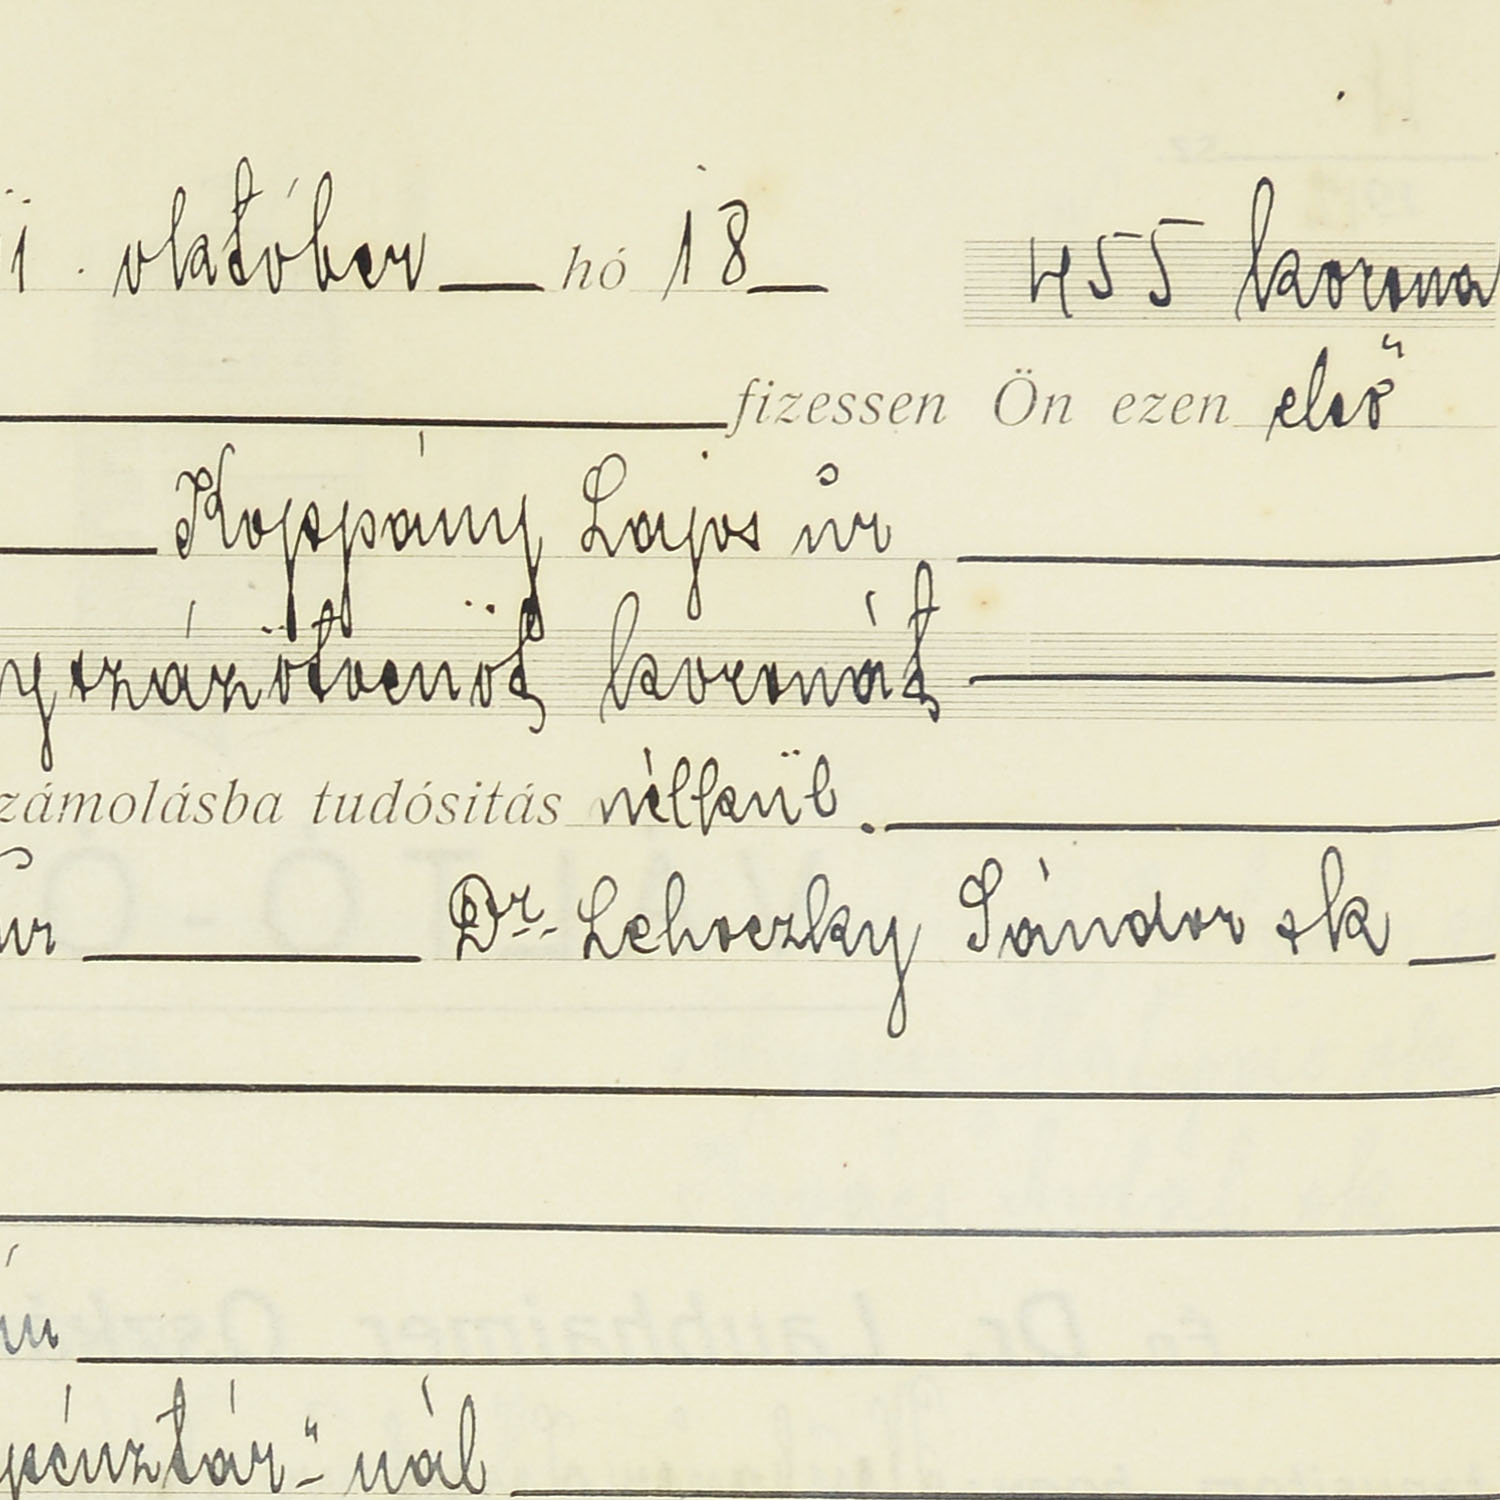 1. október hó 18 455 korona
fizessen Ön ezen első
Koppány Lajos úr
yszázötvenöt koronát
zámolásba tudósitás nélkül.
úr Dr. Lehoczky Sándor sk
pénztár"-nál